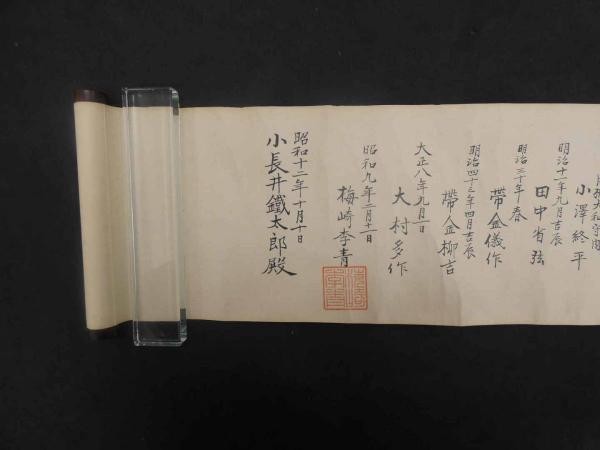 小澤終平
明治十一年九月吉辰
田中省弦
明治三十年春
帶金儀作
明治四十三年四月吉辰
帶金柳吉
大正八年九月一日
大村多作
昭和九年二月十一日
梅崎李青
昭和十二年十月十日
小長井鐵太郎殿